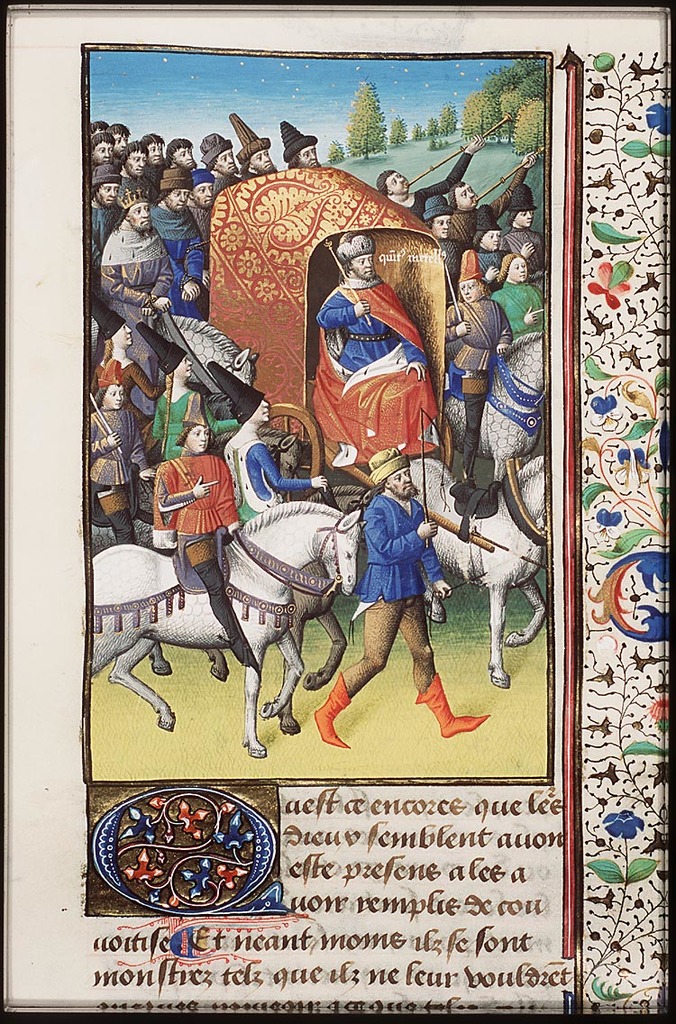 quit9 metell9
Quest ce encores que les
dieux semblent auoir
este presens a les a
uoir remplis de cou
uoitise Et neant moins ilz se sont
monstrez telz que ilz ne leur vouldrēt